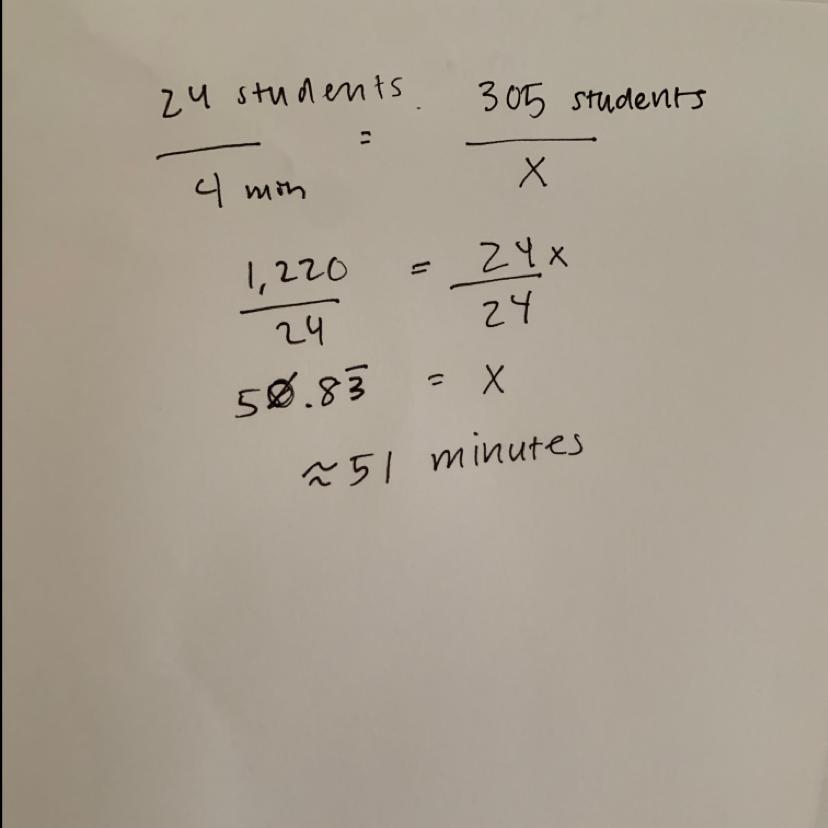 24 students. = 305 students
4 min x
1,220 = 24x
24 24
50.83̅ = x
≈51 minutes